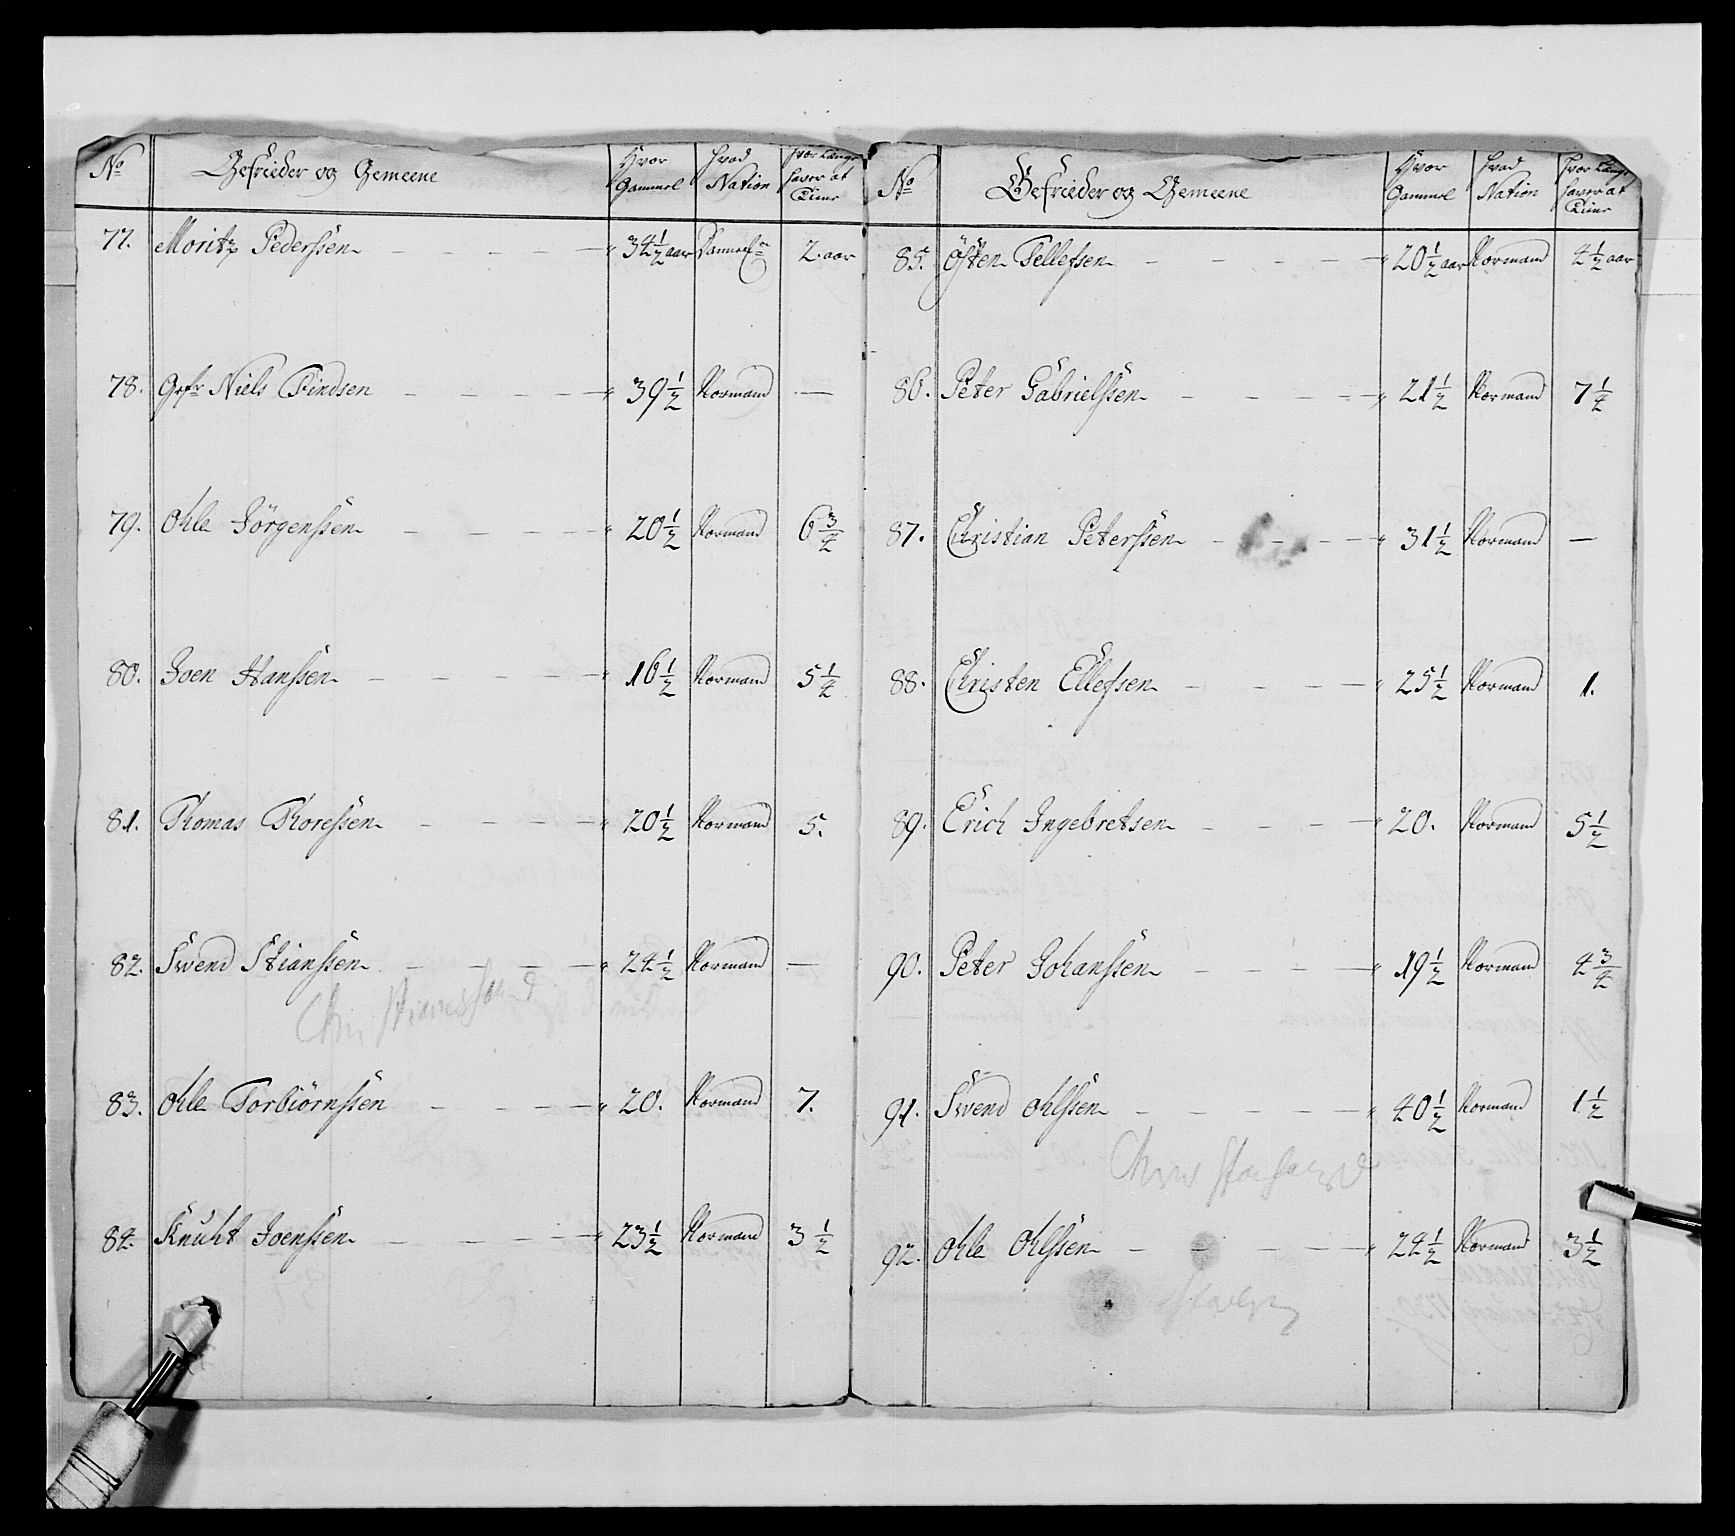 No Gefrieder og Gemeene Hvor Gammel Hvad Nation Hvor Længe haver at Tiene
77. Moritz Pederssen 34 1/2 aar 2. aar
78. Gefr Niels Findsen 39 1/2 Normand —
79. Ohle Jörgenssen 20 1/2 Normand 6 3/4
80. Joen Hanssen 16 1/2 Normand 5 1/4
81. Thomas Thoressen 20 1/2 Normand 5.
82. Swend Stianssen 24 1/2 Normand —
Christianssand
83. Ohle Torbiörnssen 20. Normand 7.
84. Knuht Joenssen 23 1/2 Normand 3 1/2
No Gefrieder og Gemeene Hvor Gammel Hvad Nation Hvor Længe haver at Tiene
85. Östen Tellefsen 20 1/2 aar Normand 4 1/2 aar
86. Peter Gabrielssen 21 1/2 Normand 7 1/4
87. Christian Peterssen 31 1/2 Normand —
88. Christen Ellefsen 25 1/2 Normand 1.
89. Erich Ingebretsen 20. Normand 5 1/2
90. Peter Johanssen 19 1/2 Normand 4 3/4
91. Swend Ohlssen 40 1/2 Normand 1 1/2
92. Ohle Ohlssen 24 1/2 Normand 3 1/2